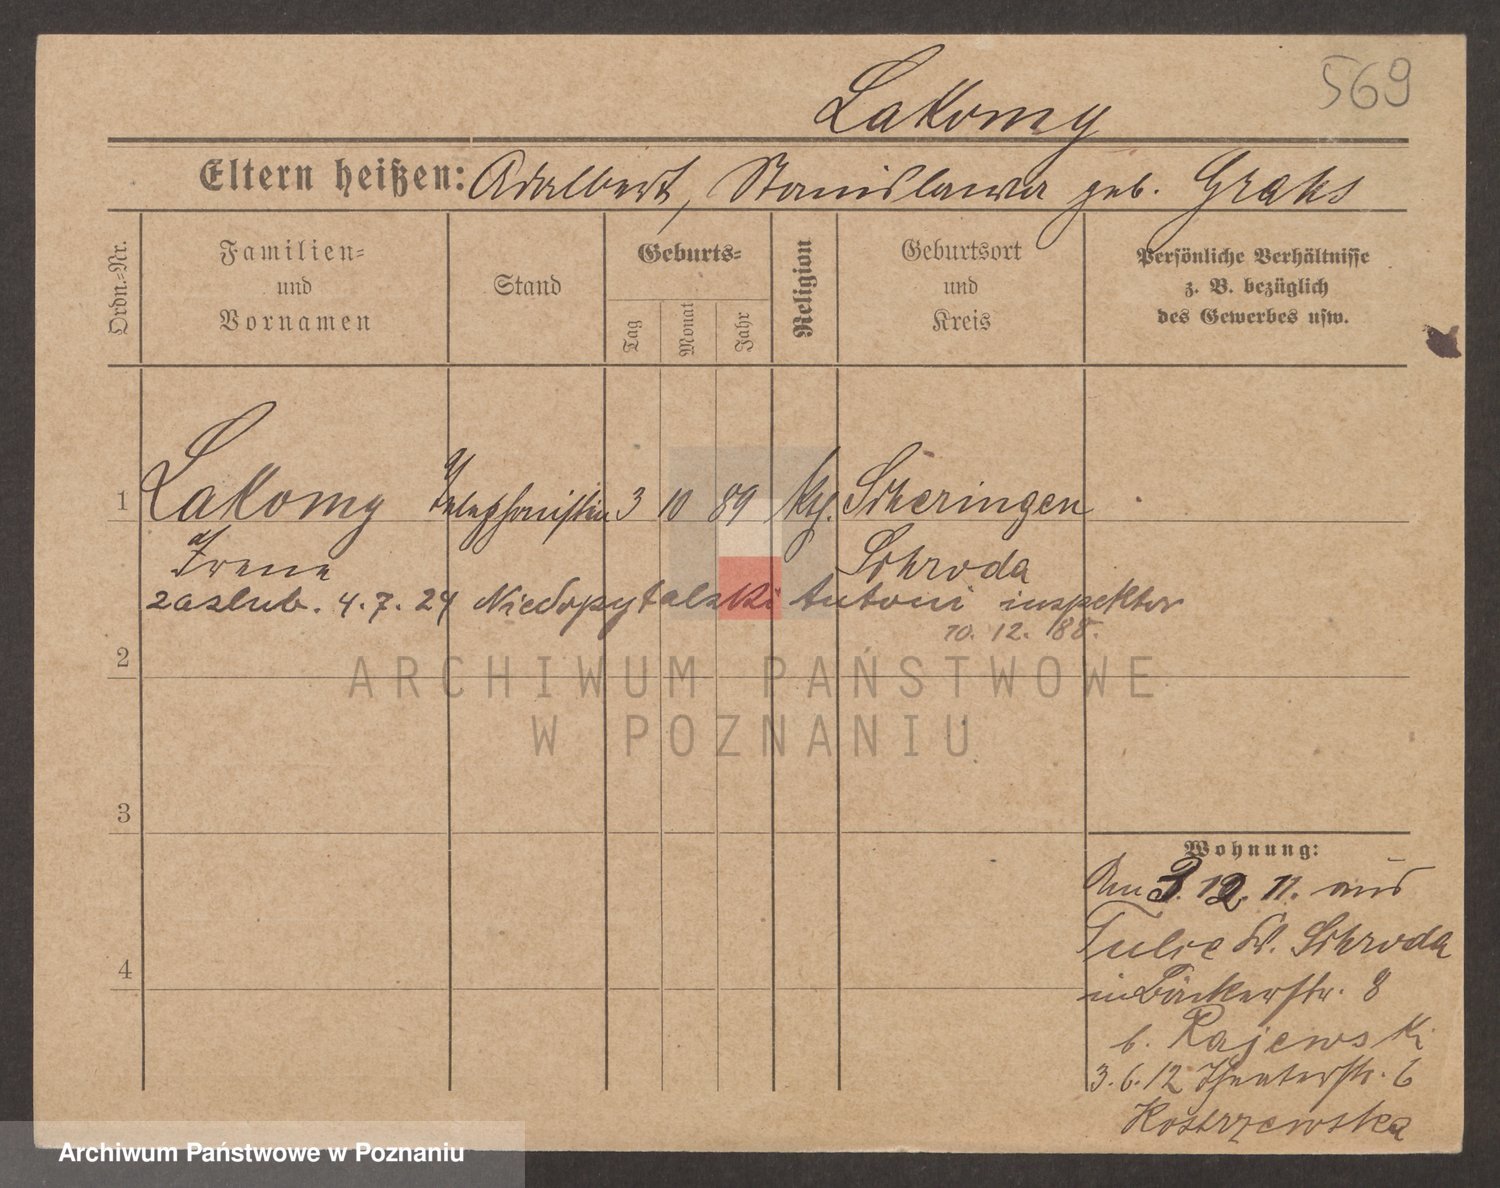 569
Lakomy
Eltern heißen: Adalbert, Stanislawa geb. Graks
Ordn.-Nr.
Familien-
und
Vornamen
Stand
Geburts-
Tag
Monat
Jahr
Religion
Geburtsort
und
Kreis
Persönliche Verhältnisse
z. B. bezüglich
des Gewerbes usw.
1 Lakomy Telephonistin 3 10 89 kth. Scheringen
Irene Schroda
zaslub. 4. 7. 24 Niedopytalski Antoni inspektor
10. 12. 88.
2
ARCHIWUM PAŃSTWOWE
W POZNANIU
3
Wohnung:
Am 3. 12. 11. aus
Tulce Kr. Schroda
4
in Bäckerstr. 8
b. Rajewski
3. 6. 12 Theaterstr. 6
Kostrzewska
Archiwum Państwowe w Poznaniu